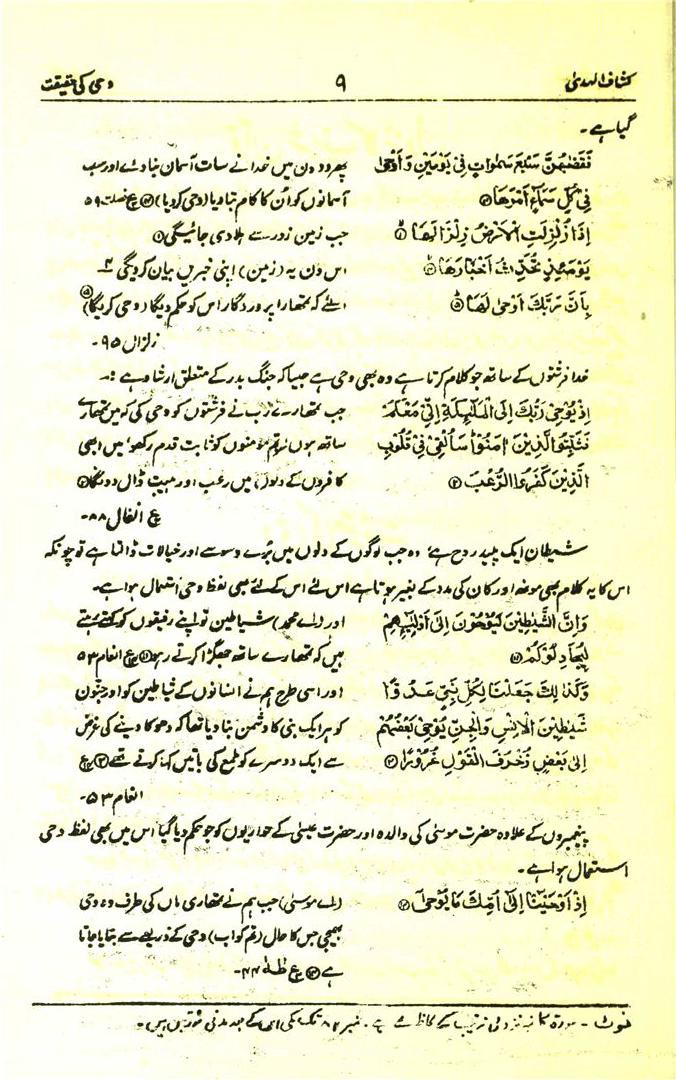 کشاف الہدیٰ ۹ وحی کی حقیقت
گیا ہے۔
فَقَضٰهُنَّ سَبْعَ سَمٰوَاتٍ فِیْ یَوْمَیْنِ وَ اَوْحٰی پھر دو دن میں خدا نے سات آسمان بنا دئے اور سب
فِیْ کُلِّ سَمَآءٍ اَمْرَهَا آسمانوں کو اُن کا کام بتا دیا (وحی کر دیا) ع فصلت ۵۹
اِذَا زُلْزِلَتِ الْاَرْضُ زِلْزَالَهَا ① جب زمین زور سے ہلا دی جائیگی ①
یَوْمَئِذٍ تُحَدِّثُ اَخْبَارَهَا اس دن یہ (زمین) اپنی خبریں بیان کرےگی ۴
بِاَنَّ رَبَّكَ اَوْحٰی لَهَا ⑤ اسلئے کہ تمھارا پروردگار اس کو حکم دیگا (وحی کریگا) ⑤
زلزال ۹۵۔
خدا فرشتوں کے ساتھ جو کلام کرتا ہے وہ بھی وحی ہے جیسا کہ جنگ بدر کے متعلق ارشاد ہے :۔
اِذْ یُوْحِیْ رَبُّكَ اِلَی الْمَلٰٓئِکَةِ اَنِّیْ مَعَکُمْ جب تمھارے رب نے فرشتوں کو وحی کی کہ میں تمھارے
فَثَبِّتُوا الَّذِیْنَ اٰمَنُوْا سَاُلْقِیْ فِیْ قُلُوْبِ ساتھ ہوں تو تم مومنوں کو ثابت قدم رکھو، میں ابھی
الَّذِیْنَ کَفَرُوا الرُّعْبَ کافروں کے دلوں میں رعب اور ہیبت ڈال دونگا
ع انفال ۸۸۔
شیطان ایک پلید روح ہے، وہ جب لوگوں کے دلوں میں بُرے وسوسے اور خیالات ڈالتا ہے تو چونکہ
اس کا یہ کلام بھی مونھ اور کان کی مدد کے بغیر ہوتا ہے اس لئے اس کے لئے بھی لفظ وحی استعمال ہوا ہے۔
وَاِنَّ الشَّیٰطِیْنَ لَیُوْحُوْنَ اِلٰٓی اَوْلِیٰٓئِهِمْ اور (اے محمد) شیاطین تو اپنے رفیقوں کو کہتے رہتے
لِیُجَادِلُوْکُمْ ہیں کہ تمھارے ساتھ جھگڑا کرتے رہو ع انعام ۵۳
وَکَذٰلِكَ جَعَلْنَا لِکُلِّ نَبِیٍّ عَدُوًّا اور اسی طرح ہم نے انسانوں کے شیاطین کو اور جنّوں
شَیٰطِیْنَ الْاِنْسِ وَالْجِنِّ یُوْحِیْ بَعْضُهُمْ کو ہر ایک نبی کا دشمن بنا دیا تھا کہ دھوکا دینے کی غرض
اِلٰی بَعْضٍ زُخْرُفَ الْقَوْلِ غُرُوْرًا سے ایک دوسرے کو طمع کی باتیں کہا کرتے تھے ع
انعام ۵۳۔
پیغمبروں کے علاوہ حضرت موسیٰ کی والدہ اور حضرت عیسیٰ کے حواریوں کو جو حکم دیا گیا اس میں بھی لفظ وحی
استعمال ہوا ہے۔
اِذْ اَوْحَیْنَآ اِلٰٓی اُمِّكَ مَا یُوْحٰٓی (اے موسیٰ) جب ہم نے تمھاری ماں کی طرف وہ وحی
بھیجی جس کا حال (تم کو اب) وحی کے ذریعے سے بتایا جاتا
ہے ع طٰهٰ ۴۴۔
نوٹ۔ سورۃ کا نمبر نزولی ترتیب کے لحاظ سے ہے۔ نمبر ۸۶ تک مکی اس کے بعد مدنی سورتیں ہیں۔